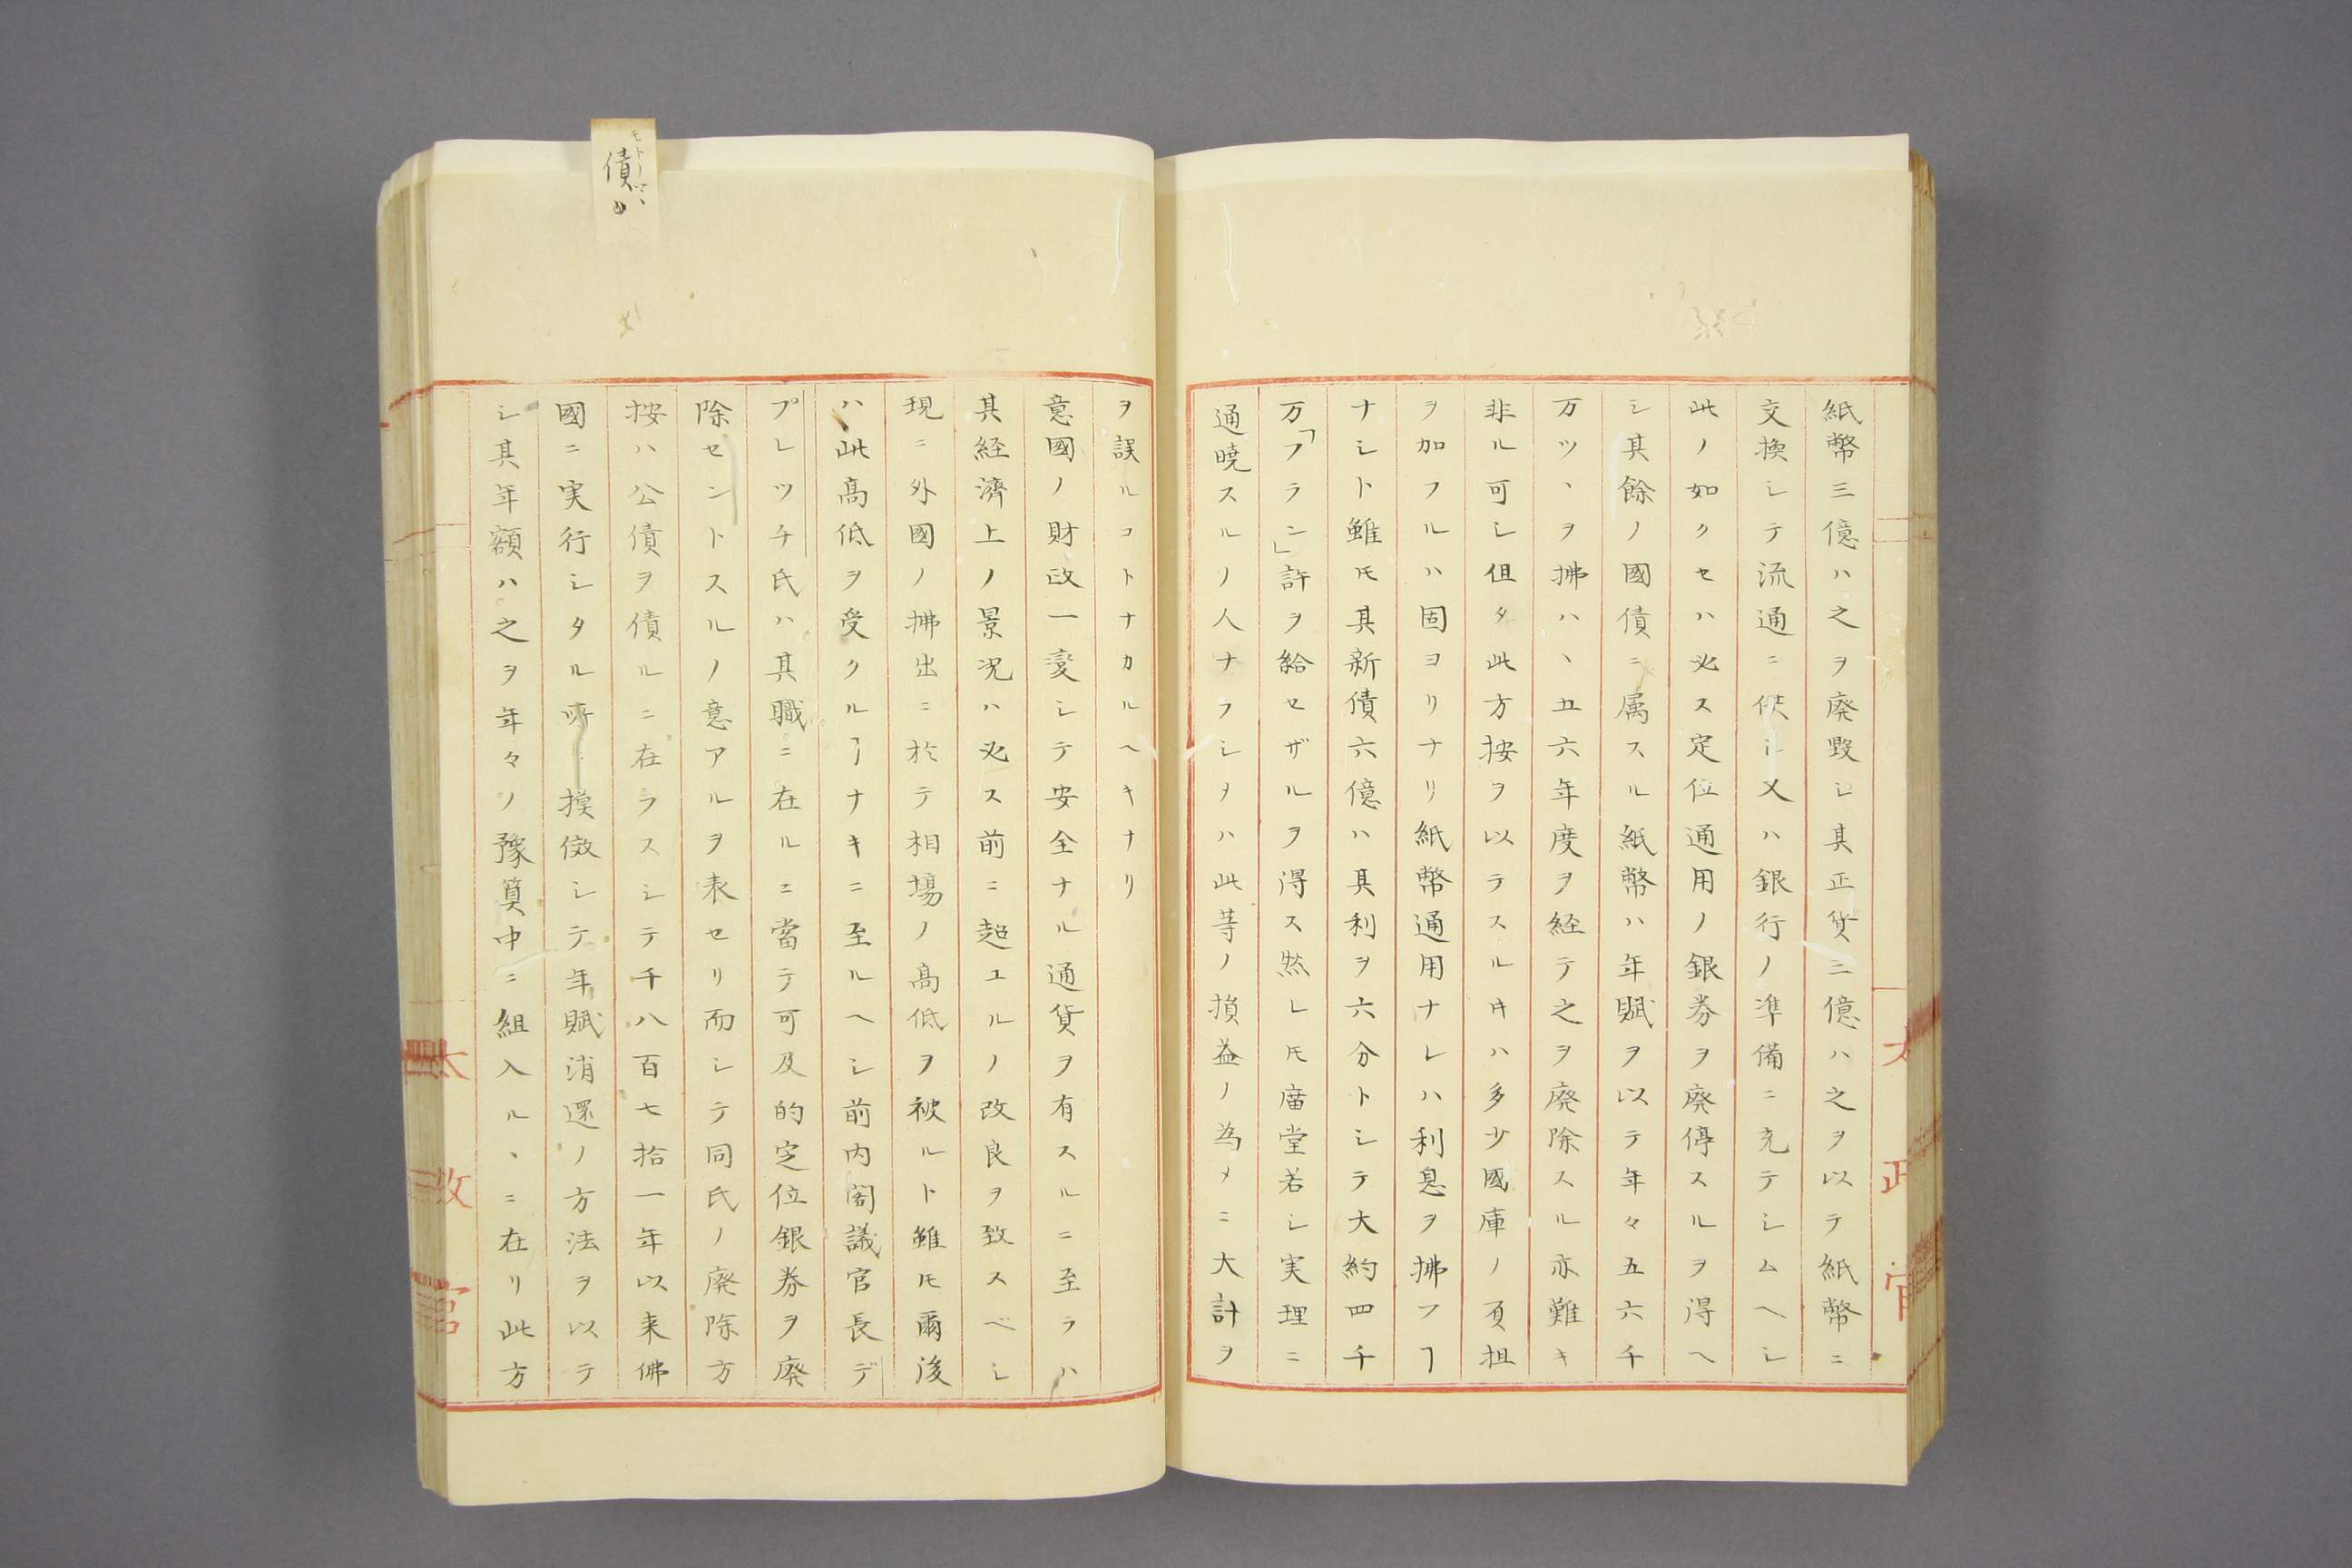 紙幣三億ハ之ヲ廃毀シ其正貨三億ハ之ヲ以テ紙幣ニ
交換シテ流通ニ供シ又ハ銀行ノ準備ニ充テシムヘシ
此ノ如クセハ必ス定位通用ノ銀券ヲ廃停スルヲ得ヘ
シ其餘ノ國債ニ属スル紙幣ハ年賦ヲ以テ年々五六千
万ツヽヲ拂ハヽ五六年度ヲ経テ之ヲ廃除スル亦難キ
非ル可シ但タ此方按ヲ以テスルキハ多少國庫ノ負担
ヲ加フルハ固ヨリナリ紙幣通用ナレハ利息ヲ拂フヿ
ナシト雖𪜈其新債六億ハ其利ヲ六分トシテ大約四千
万「フラン」許ヲ給セザルヲ得ス然レ𪜈庿堂若シ実理ニ
通曉スルノ人ナラシメハ此等ノ損益ノ為メニ大計ヲ
ヲ誤ルコトナカルヘキナリ
意國ノ財政一変シテ安全ナル通貨ヲ有スルニ至ラハ
其経濟上ノ景況ハ必ス前ニ超ユルノ改良ヲ致スベシ
現ニ外國ノ拂出ニ於テ相場ノ髙低ヲ被ルト雖𪜈爾後
ハ此髙低ヲ受クルヿナキニ至ルヘシ前内閣議官長デ
プレツチ氏ハ其職ニ在ルニ當テ可及的定位銀券ヲ廃
除セントスルノ意アルヲ表セリ而シテ同氏ノ廃除方
按ハ公債ヲ債ルニ在ラスシテ千八百七拾一年以来佛
國ニ実行シタル所ニ摸倣シテ年賦消還ノ方法ヲ以テ
シ其年額ハ之ヲ年々ノ豫算中ニ組入ルヽニ在リ此方
債カ
太政官
太政官